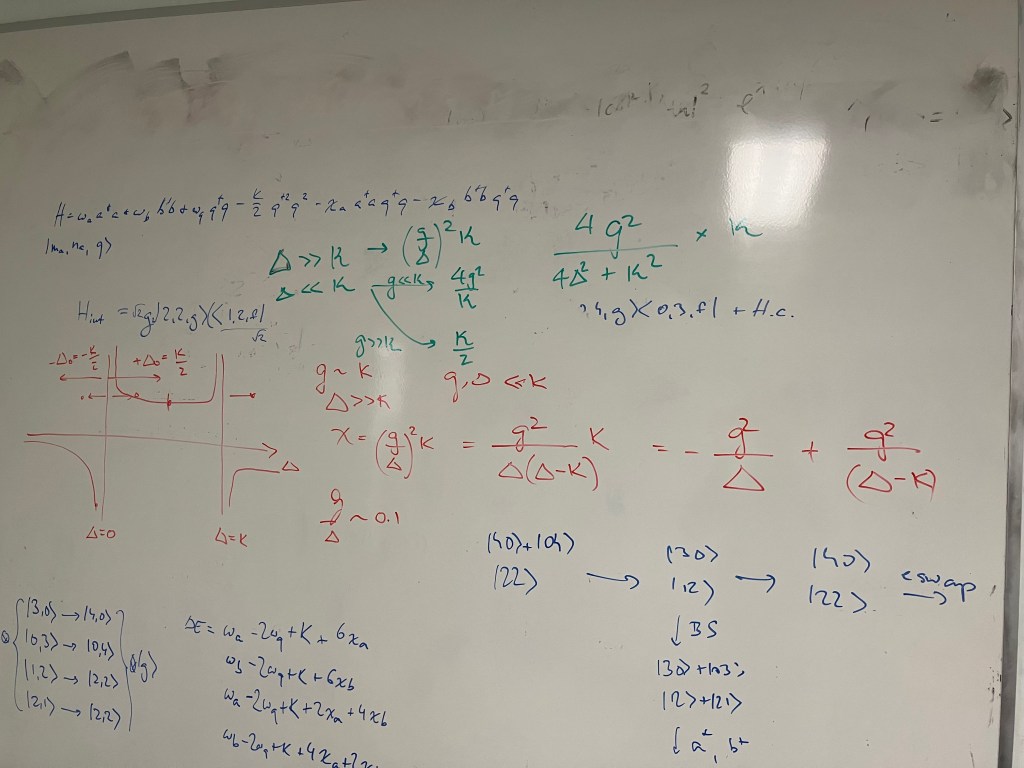 H = ωₐ a⁺a + ω_b b⁺b + ω_q q⁺q − K/2 q⁺² q² − χₐ a⁺a q⁺q − χ_b b⁺b q⁺q
|mₐ, nₐ, g⟩
Δ >> K → (g/Δ)² K
Δ << K g<<K → 4g²/K
g>>K → K/2
4 g² / (4Δ² + K²) × K
H_int = √2 g |2,2,g⟩⟨1,2,f|
√2
4,g⟩⟨0,3,f| + H.c.
−Δ₀ = −K/2
+Δ₀ = K/2
Δ
Δ=0
Δ=K
g ~ K
Δ >> K
g, Δ << K
χ = (g/Δ)² K = g² / Δ(Δ−K) K = − g²/Δ + g²/(Δ−K)
g/Δ ~ 0.1
|40⟩+|04⟩
|22⟩ →
|30⟩
|12⟩ →
|40⟩
|22⟩
cswap →
↓ BS
|30⟩+|03⟩
|2⟩+|21⟩
↓ a⁺, b⁺
|3,0⟩ → |4,0⟩
|0,3⟩ → |0,4⟩
|1,2⟩ → |2,2⟩
|2,1⟩ → |2,2⟩
⊗|g⟩
ΔE = ωₐ − 2ω_q + K + 6χₐ
ω_b − 2ω_q + K + 6χ_b
ωₐ − 2ω_q + K + 2χₐ + 4χ_b
ω_b − 2ω_q + K + 4χₐ + 2χ